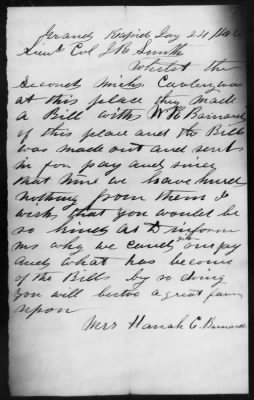 Grand Rapids Jay 24 1862
Lieut Col J R Smith
Whilst the
Second Mich. Cavlery was
at this place they made
a Bill with W R Barnard
of this place and the Bill
was made out and sent
in for pay and since
that time we have hurd
nothing from them I
wish that you would be
so kind as to inform
me why we cand get our pay
and what has become
of the Bill by so doing
you will bestoe a great favor
upon
Mrs Hanah C. Barnard